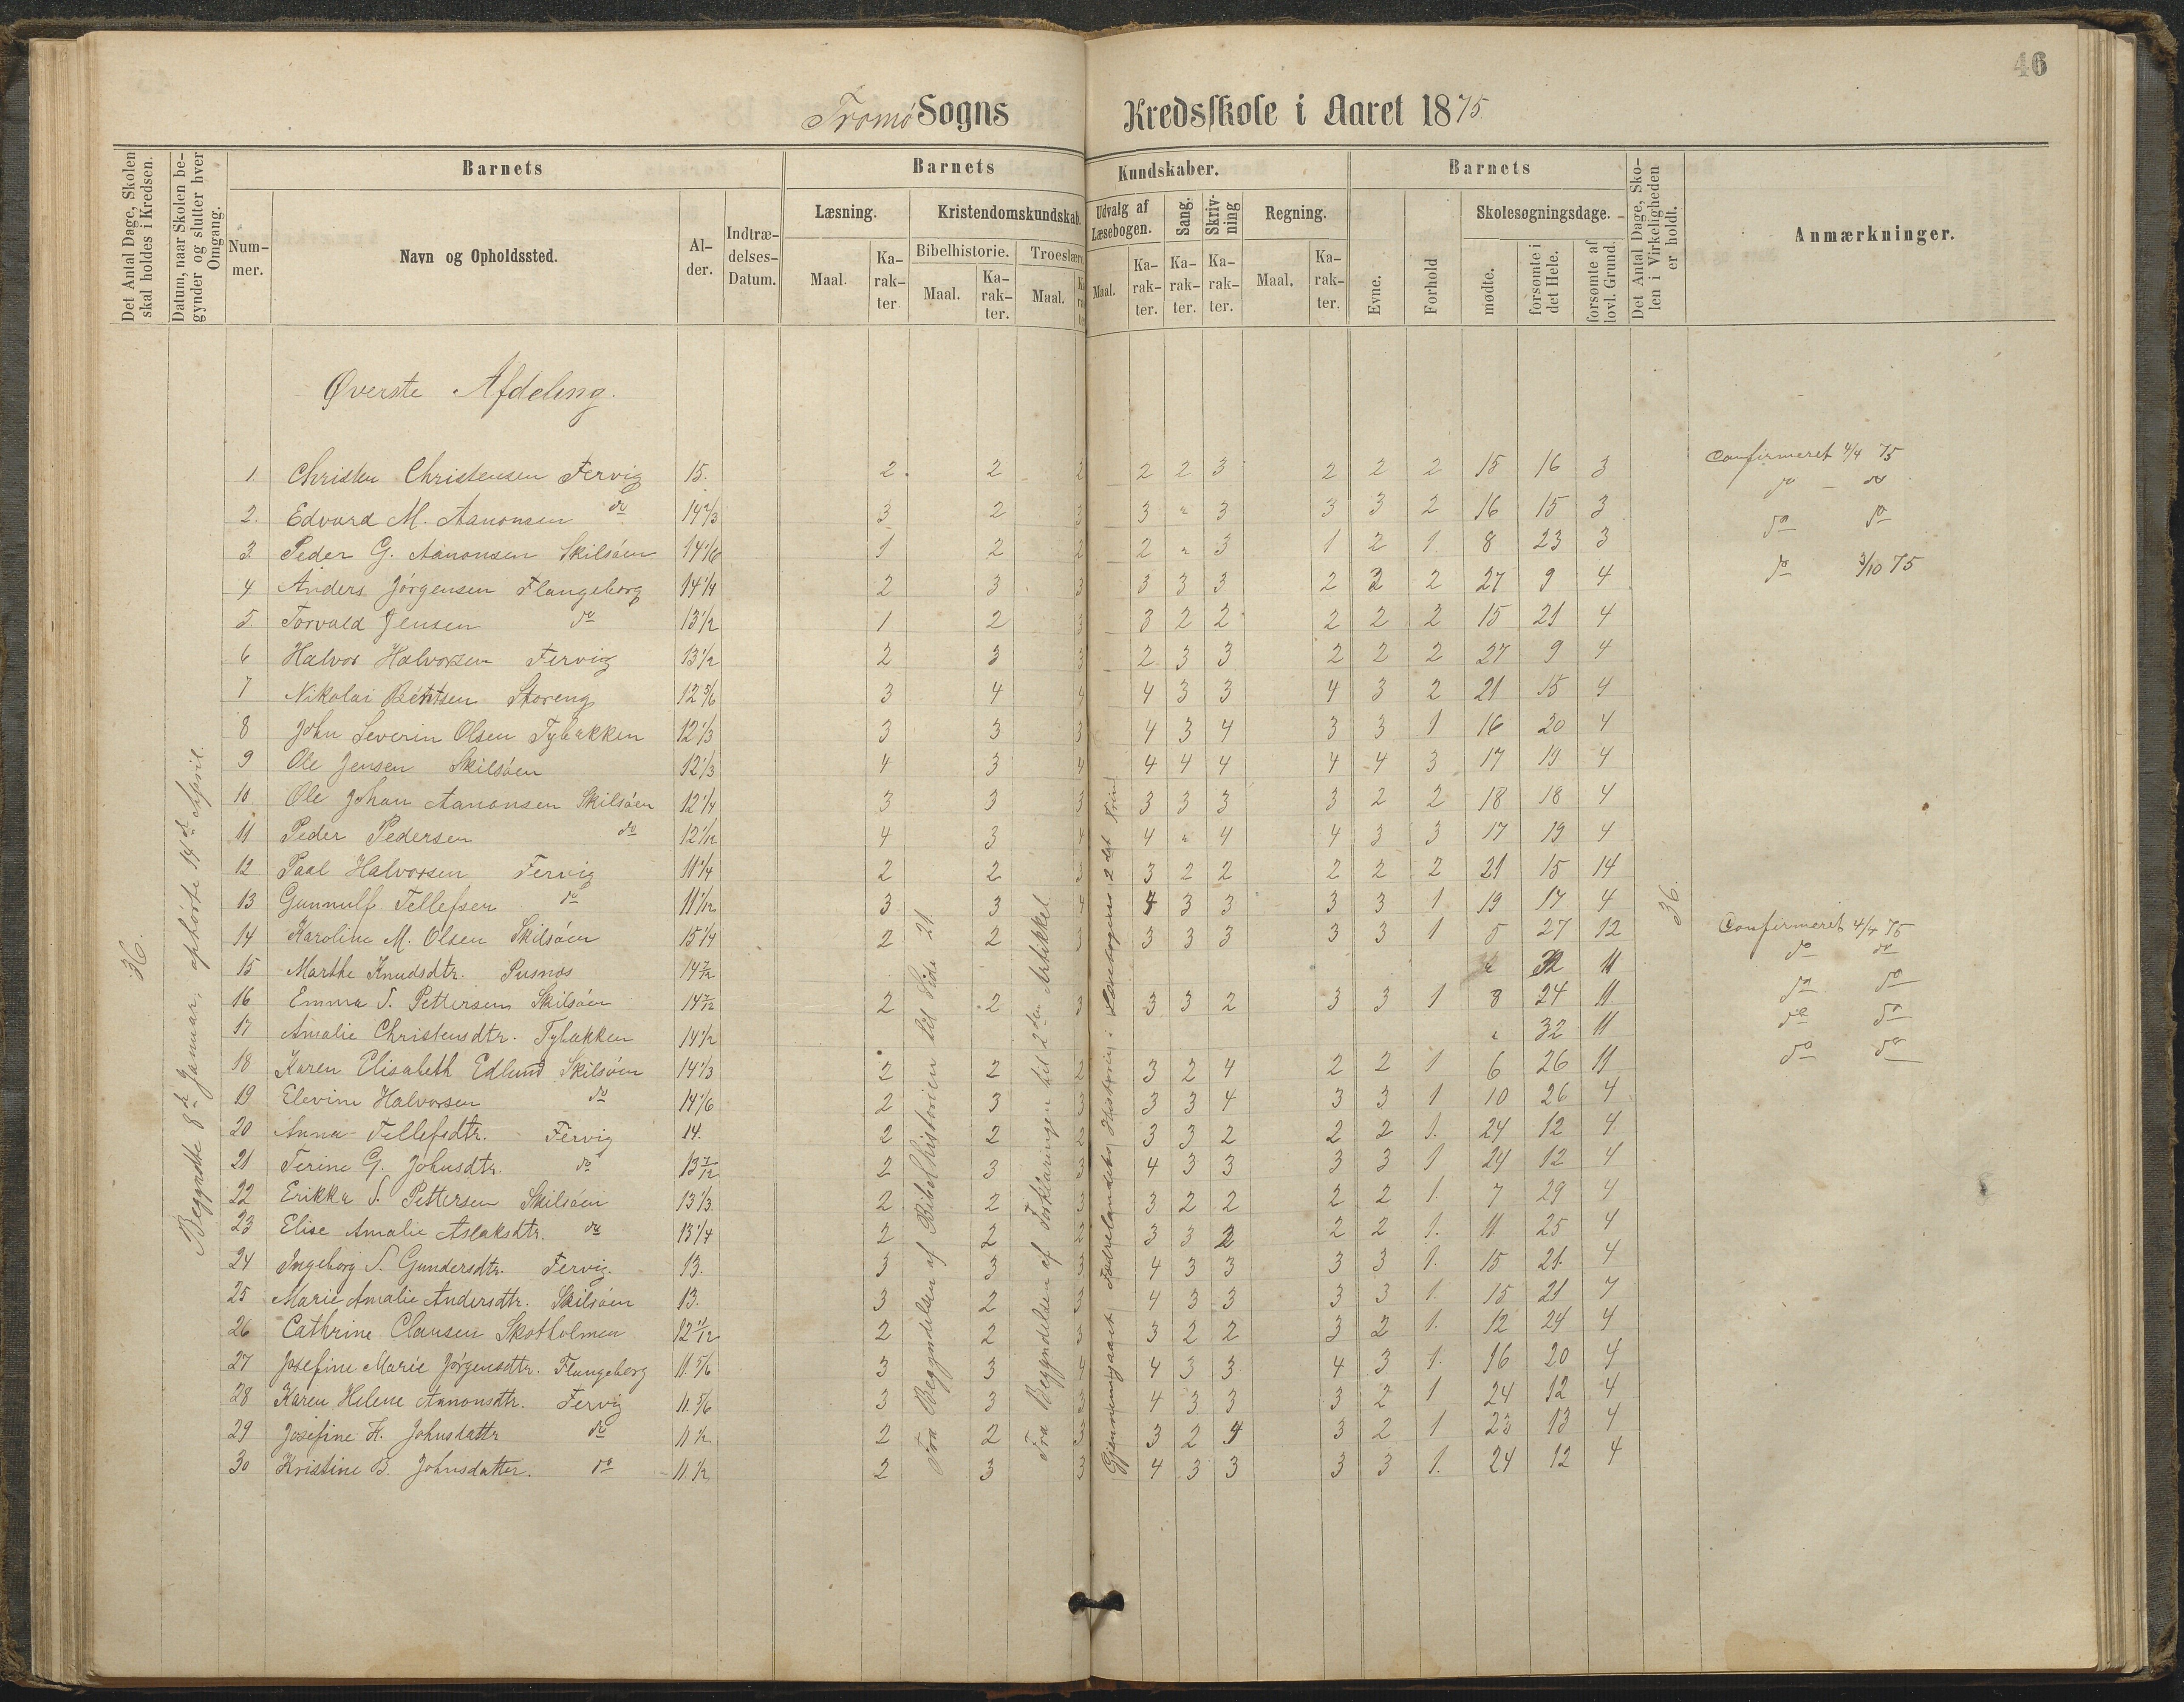 46
Tromø Sogns Kredsskole i Aaret 1875.
Det Antal Dage, Skolen skal holdes i Kredsen.
Datum, naar Skolen begynder og slutter hver Omgang.
Barnets
Num-mer.
Navn og Opholdssted.
Al-der.
Indtræ-delses-Datum.
Barnets Kundskaber.
Læsning.
Maal.
Ka-rak-ter
Kristendomskundskab.
Bibelhistorie.
Maal.
Ka-rak-ter.
Troeslære
Maal.
Udvalg af Læsebogen.
Maal.
Ka-rak-ter.
Sang.
Ka-rak-ter.
Skriv-ning
Ka-rak-ter.
Regning.
Maal.
Ka-rak-ter.
Barnets
Evne.
Forhold
Skolesøgningsdage.
mødte.
forsømte i det Hele.
forsømte af lovl. Grund.
Det Antal Dage, Sko-len i Virkeligheden er holdt.
Anmærkninger.
Øverste Afdeling.
36.
Begyndte 8de Januar, ophørte 14de April.
Fra Begyndelsen af Bibelhistorien til Side 21.
Fra Begyndelsen af Forklaringen til 2den Artikkel.
Gjennemgaaet Fædrelandets Historie i Læsebogens 2det Trin
36.
1 Christen Christensen Fervig 15. 2 2 2 2 2 3 2 2 2 15 16 3 Confirmeret 4/4 75
2. Edvard M. Aanonsen do 14 2/3 3 2 3 3 " 3 3 3 2 16 15 3 do do
3 Peder G. Aanonsen Skilsøen 14 1/6 1 2 2 2 " 3 1 2 1 8 23 3 do do
4 Anders Jørgensen Flangeborg 14 1/4 2 3 3 3 3 3 2 2 2 27 9 4 do 3/10 75
5. Torvald Jensen do 13 1/2 1 2 3 3 2 2 2 2 2 15 21 4
6 Halvor Halvorsen Fervig 13 1/2 2 3 3 2 3 3 2 2 2 27 9 4
7 Nikolai Bentsen Storeng 12 5/6 3 4 4 4 3 3 4 3 2 21 15 4
8 John Severin Olsen Tybakken 12 1/3 3 3 3 4 3 4 3 3 1 16 20 4
9 Ole Jensen Skilsøen 12 1/3 4 3 4 4 4 4 4 4 3 17 19 4
10 Ole Johan Aanonsen Skilsøen 12 1/4 3 3 3 3 3 3 3 2 2 18 18 4
11 Peder Pedersen do 12 1/12 4 3 4 4 " 4 4 3 3 17 19 4
12 Paal Halvorsen Fervig 11 1/4 2 2 3 3 2 2 2 2 2 21 15 14
13 Gunnulf Tellefsen do 11 1/12 3 3 4 4 3 3 3 3 1 19 17 4
14 Karoline M. Olsen Skilsøen 15 1/4 2 2 3 3 3 3 3 3 1 5 27 12 Confirmeret 4/4 75
15 Marthe Knudsdtr. Pusnes 14 7/12 " 32 11 do do
16 Emma S. Pettersen Skilsøen 14 7/12 2 2 3 3 3 2 3 3 1 8 24 11 do do
17 Amalie Christensdtr. Tybakken 14 1/2 " 32 11 do do
18 Karen Elisabeth Edlund Skilsøen 14 1/3 2 2 2 3 2 4 2 2 1 6 26 11 do do
19 Elevine Halvorsen do 14 1/6 2 3 3 3 3 4 3 3 1 10 26 4
20 Anna Tellefsdtr. Fervig 14. 2 2 2 3 3 2 2 2 1. 24 12 4
21 Terine G. Johnsdtr. do 13 7/12 2 3 3 4 3 3 3 3 1 24 12 4
22 Erikka S. Pettersen Skilsøen 13 1/3 2 2 3 3 2 2 2 2 1. 7 29 4
23 Elise Amalie Aslaksdtr. do 13 1/4 2 2 2 3 3 2 2 2 1. 11 25 4
24 Ingeborg S. Gundersdtr. Fervig. 13. 3 3 3 4 3 3 3 3 1. 15 21. 4
25 Marie Amalie Andersdtr. Skilsøen 13. 3 2 3 4 3 3 3 3 1. 15 21 7
26 Cathrine Clausen Skotholmen 12 11/12 2 2 3 3 2 2 3 2 1. 12 24 4
27 Josefine Marie Jørgensdtr. Flangeborg 11. 5/6 3 3 4 4 3 3 4 3 1. 16 20 4
28 Karen Helene Aanonsdtr. Fervig 11. 5/6 3 3 3 4 3 3 3 2 1 24 12 4
29 Josefine K. Johnsdattr do 11 1/2 2 2 3 3 2 4 3 2 1 23 13 4
30 Kristine B. Johnsdatter. do 11. 1/2 2 3 3 4 3 3 3 3 1. 24 12 4